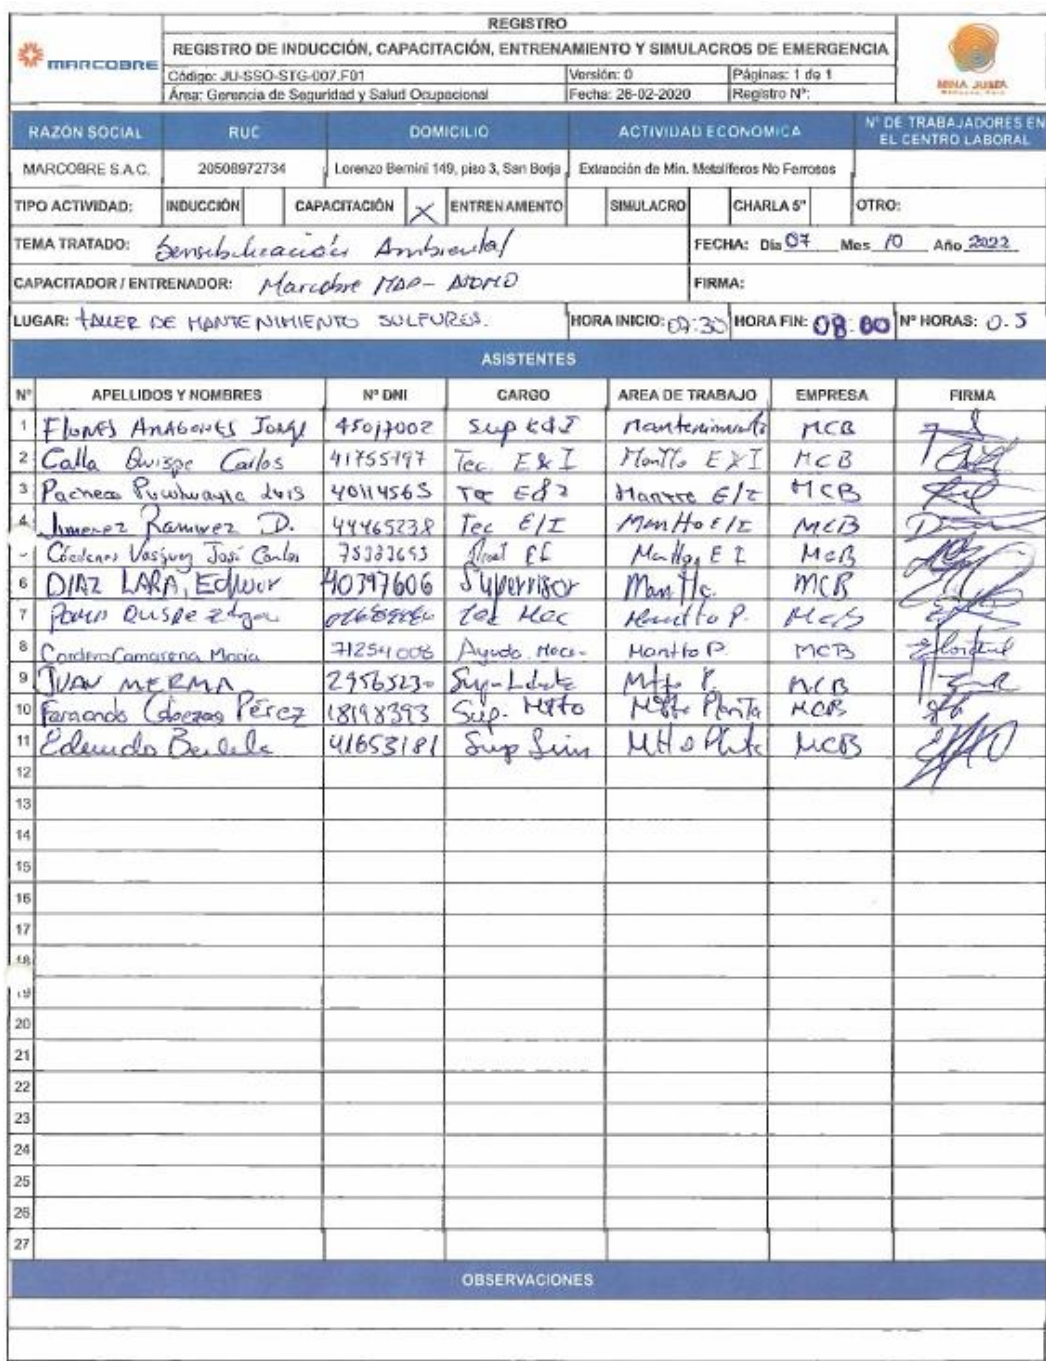 REGISTRO
MARCOBRE
REGISTRO DE INDUCCIÓN, CAPACITACIÓN, ENTRENAMIENTO Y SIMULACROS DE EMERGENCIA
Código: JU-SSO-STG-007.F01 Versión: 0 Páginas: 1 de 1
Área: Gerencia de Seguridad y Salud Ocupacional Fecha: 26-02-2020 Registro Nº:
MINA JUSTA
RAZÓN SOCIAL RUC DOMICILIO ACTIVIDAD ECONOMICA Nº DE TRABAJADORES EN EL CENTRO LABORAL
MARCOBRE S.A.C. 20508972734 Lorenzo Bernini 149, piso 3, San Borja Extracción de Min. Metalíferos No Ferrosos
TIPO ACTIVIDAD: INDUCCIÓN CAPACITACIÓN X ENTRENAMIENTO SIMULACRO CHARLA 5" OTRO:
TEMA TRATADO: Sensibilización Ambiental FECHA: Dia 07 Mes 10 Año 2022
CAPACITADOR / ENTRENADOR: Marcobre MAP- FIRMA:
LUGAR: TALLER DE MANTENIMIENTO SULFUROS. HORA INICIO: 07:30 HORA FIN: 08:00 Nº HORAS: 0.5
ASISTENTES
Nº APELLIDOS Y NOMBRES Nº DNI CARGO AREA DE TRABAJO EMPRESA FIRMA
1 Flores Aragones Jorge 45017002 Sup E&I Mantenimiento MCB
2 Calla Quispe Carlos 41755797 Tec. E&I Mantto E&I MCB
3 Pacheco Luis 40114565 Tec E&I Mantto E/I MCB
4 Jimenez Ramirez D. 44465238 Tec E/I Mantto E/I MCB
Cárdenas Vasquez José Carlos Mantto, E I MCB
6 DIAZ LARA, Edwar 40397606 Supervisor Mantto. MCB
7 Quispe Tec Mec Mantto P. MCB
8 Cordero Camarena Maria 71254008 Ayuda. Mec. Mantto P. MCB
9 JUAN MERMA 29565230 Mtto P. MCB
10 Fernando Cabezas Pérez 18198393 Sup. Mtto Mtto Planta MCB
11 Eduardo 41653181 Sup Mtto Planta MCB
12
13
14
15
16
17
18
19
20
21
22
23
24
25
26
27
OBSERVACIONES